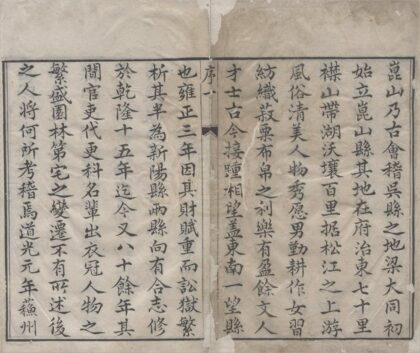 崑山乃古會稽吳縣之地梁大同初
始立崑山縣其地在府治東七十里
襟山帶湖沃壤百里据松江之上游
風俗清美人物秀愿男勤耕作女習
紡織菽粟布帛之利樂有盈餘文人
才士古今接踵相望蓋東南一望縣
序 八
也雍正三年因其財賦重而訟獄繁
析其半為新陽縣兩縣向有合志修
於乾隆十五年迄今又八十餘年其
間官吏代更科名輩出衣冠人物之
繁盛園林第宅之變遷不有所述後
之人將何所考稽焉道光元年蘓州